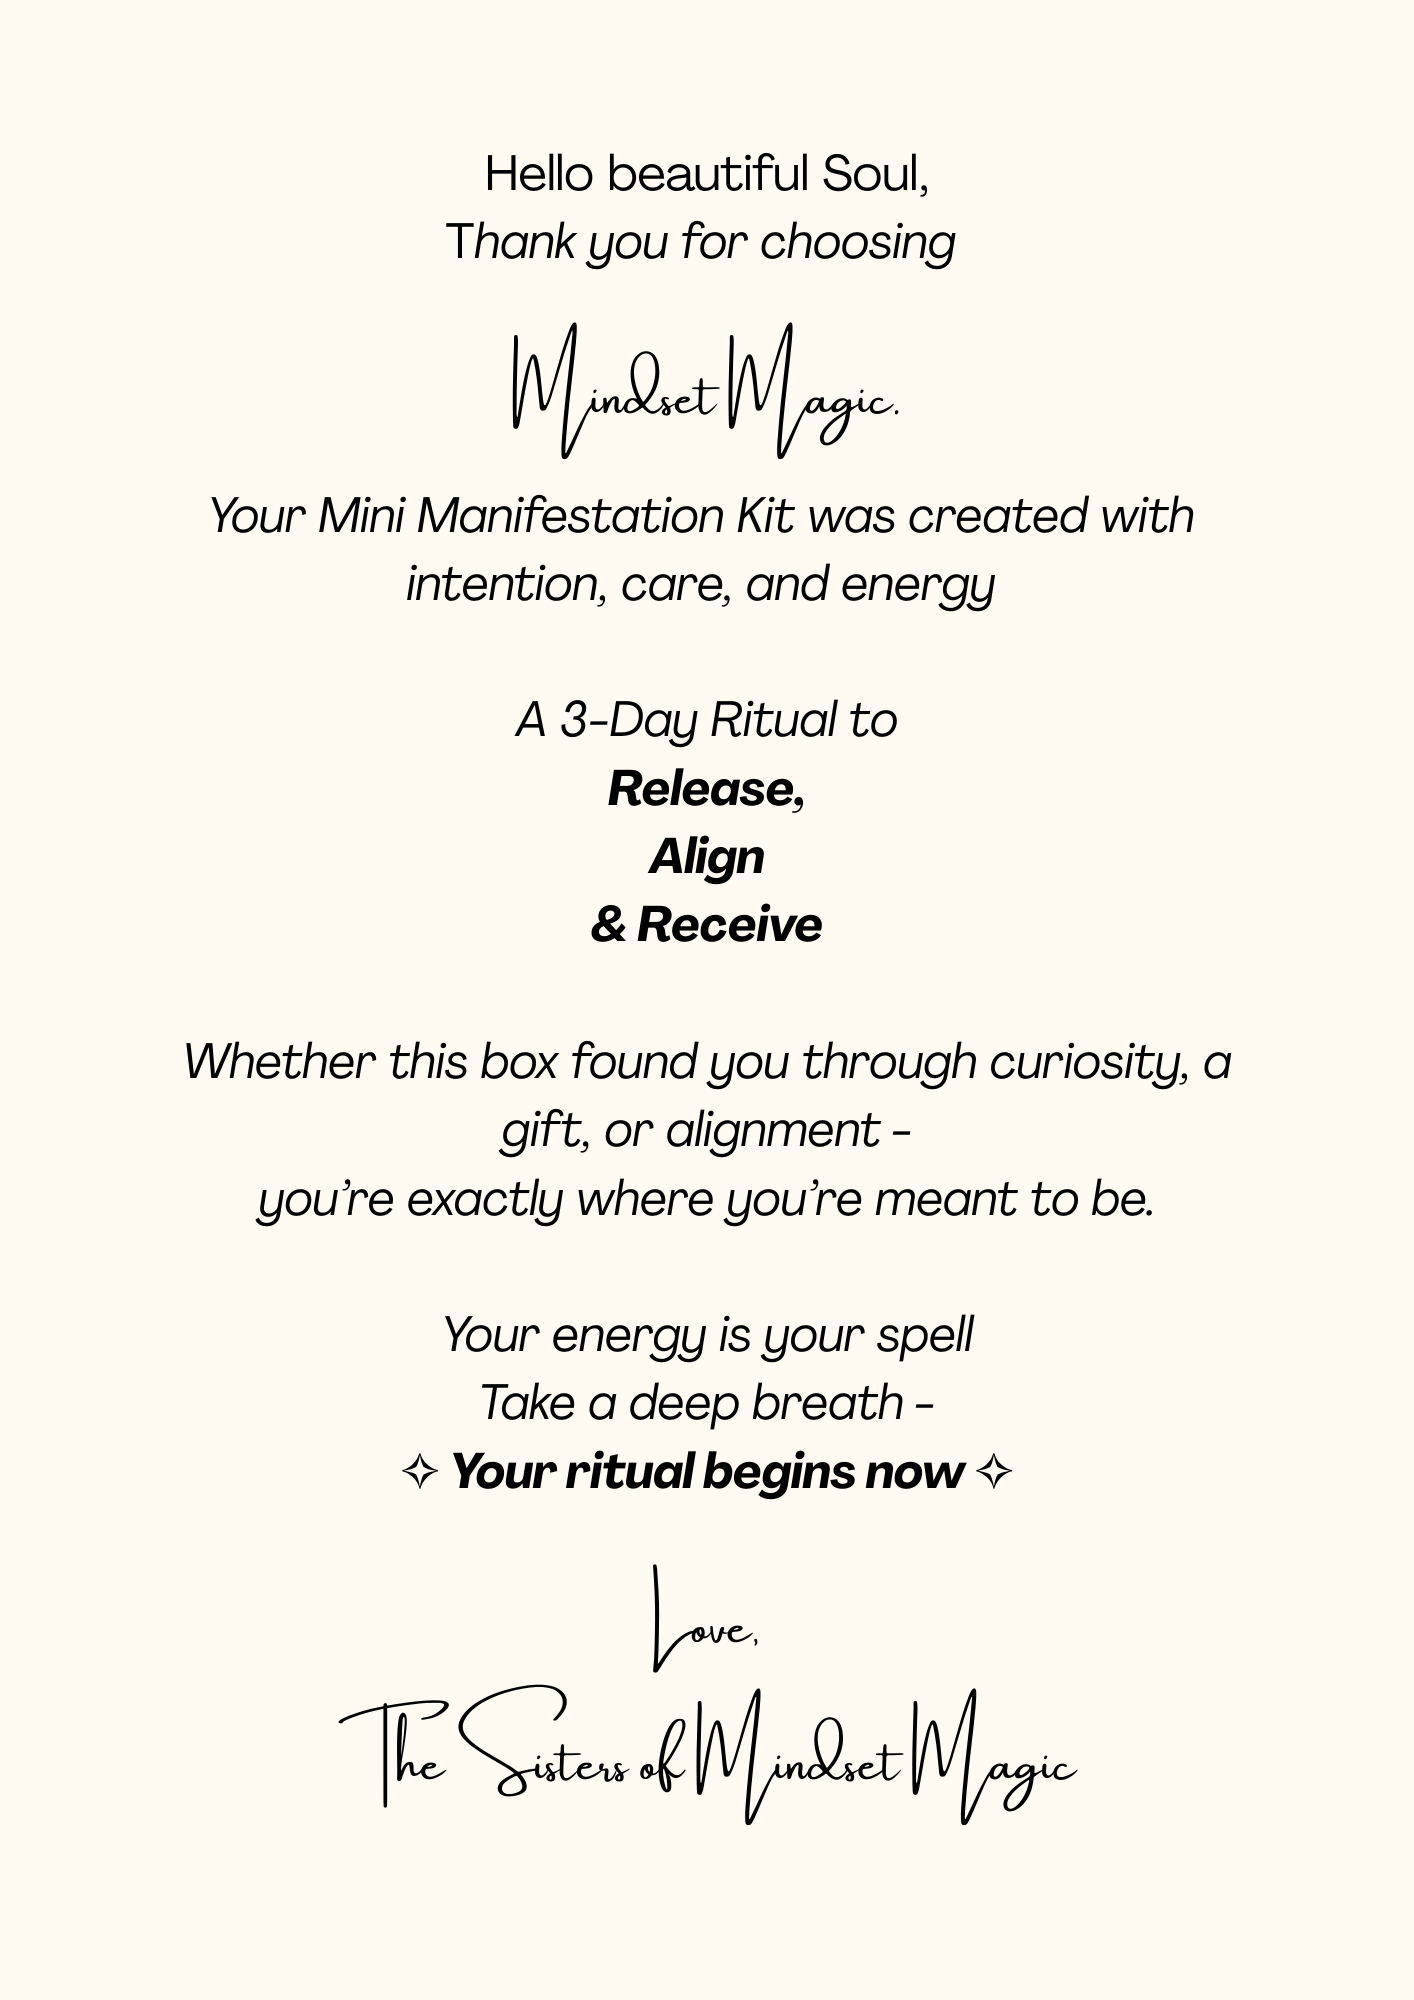 Hello beautiful Soul,
Thank you for choosing
Mindset Magic.
Your Mini Manifestation Kit was created with
intention, care, and energy
A 3-Day Ritual to
Release,
Align
& Receive
Whether this box found you through curiosity, a
gift, or alignment -
you’re exactly where you’re meant to be.
Your energy is your spell
Take a deep breath -
✧ Your ritual begins now ✧
Love,
The Sisters of Mindset Magic